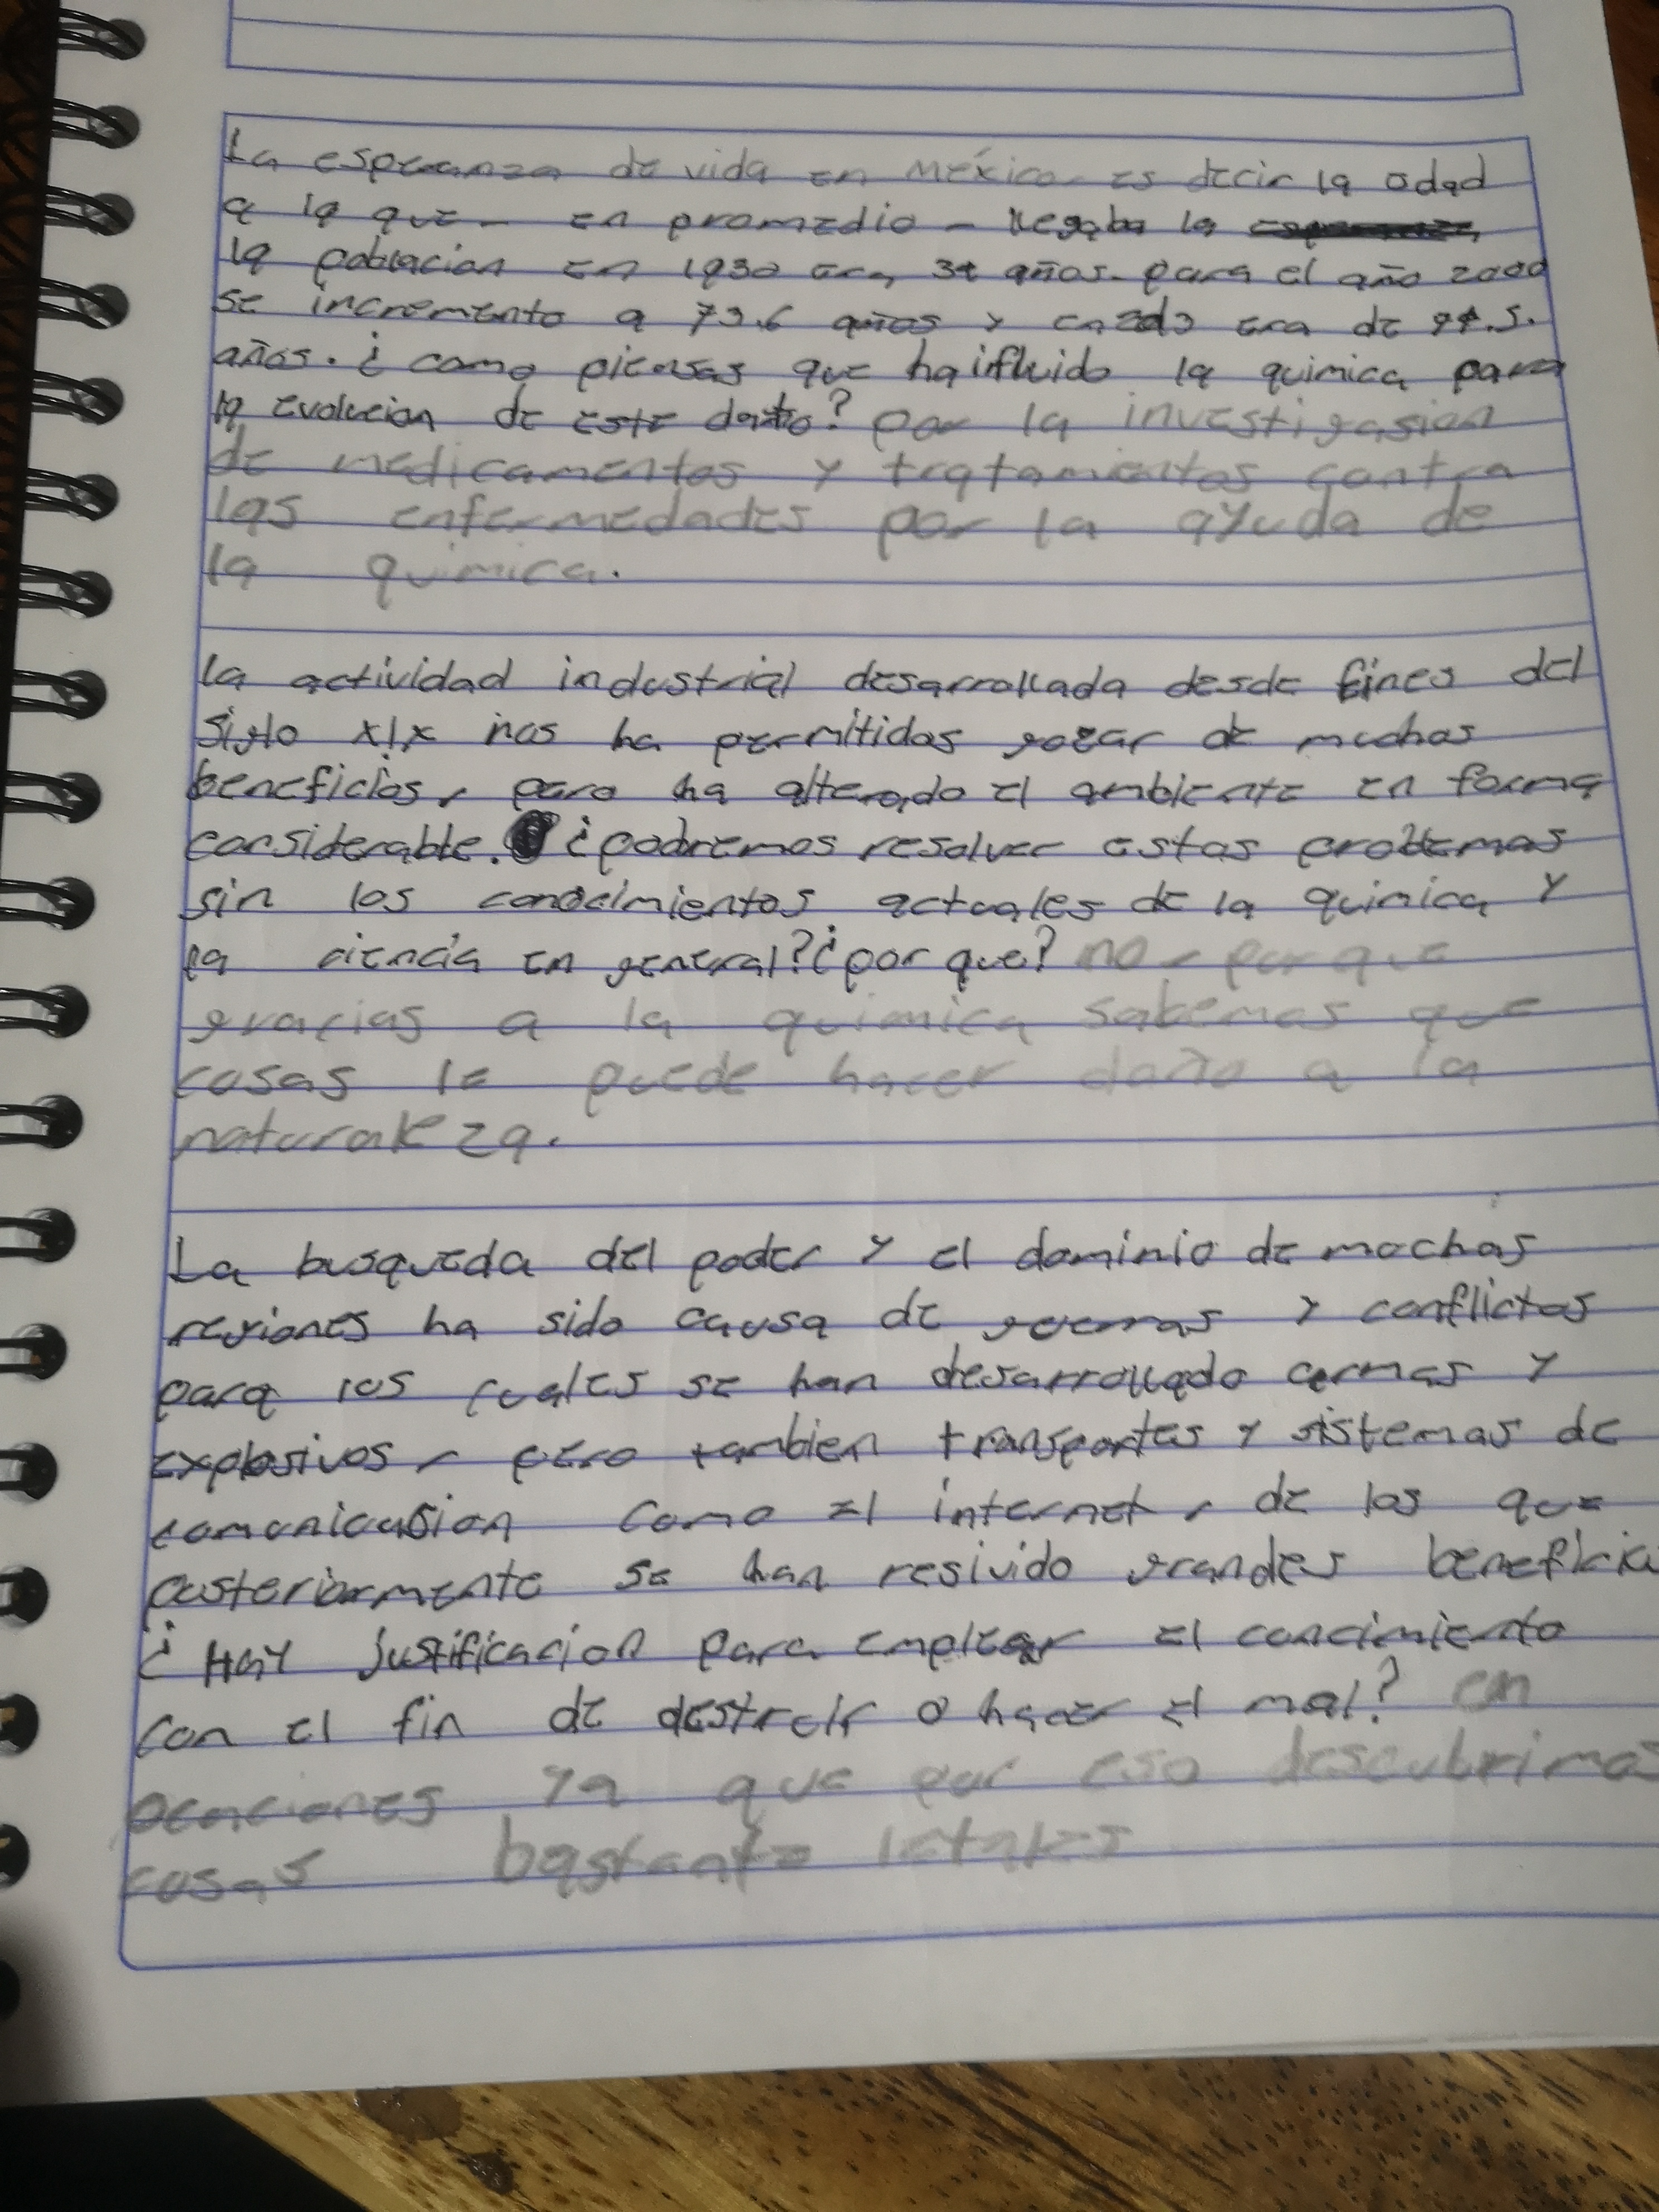 La esperanza de vida en México es decir la edad
a la que - en promedio - llegaba la
la poblacion en 1930 era 34 años. para el año 2000
se incremento a 73.6 años y en era de
años. ¿ como piensas que ha ifluido la quimica para
la evolucion de este dato? por la investigasion
de medicamentos y tratamientos contra
las enfermedades por la ayuda de
la quimica.
la actividad industrial desarrollada desde fines del
siglo xix nos ha permitidos gozar de muchos
beneficios, pero ha alterado el ambiente en forma
considerable. ¿podremos resolver estos problemas
sin los conocimientos actuales de la quimica y
la ciencia en general? ¿por que? no, porque
gracias a la quimica sabemos que
cosas le puede hacer daño a la
naturaleza.
La busqueda del poder y el dominio de mochas
regiones ha sido causa de guerras y conflictos
para los cuales se han desarrollado armas y
explosivos, pero tambien transportes y sistemas de
comunicasion como el internet, de los que
posteriormente se han resivido grandes beneficio
¿ Hay justificacion para emplear el concimiento
con el fin de destroir o hacer el mal? en
ocaciones ya que por eso descubrimos
cosas bastante letales